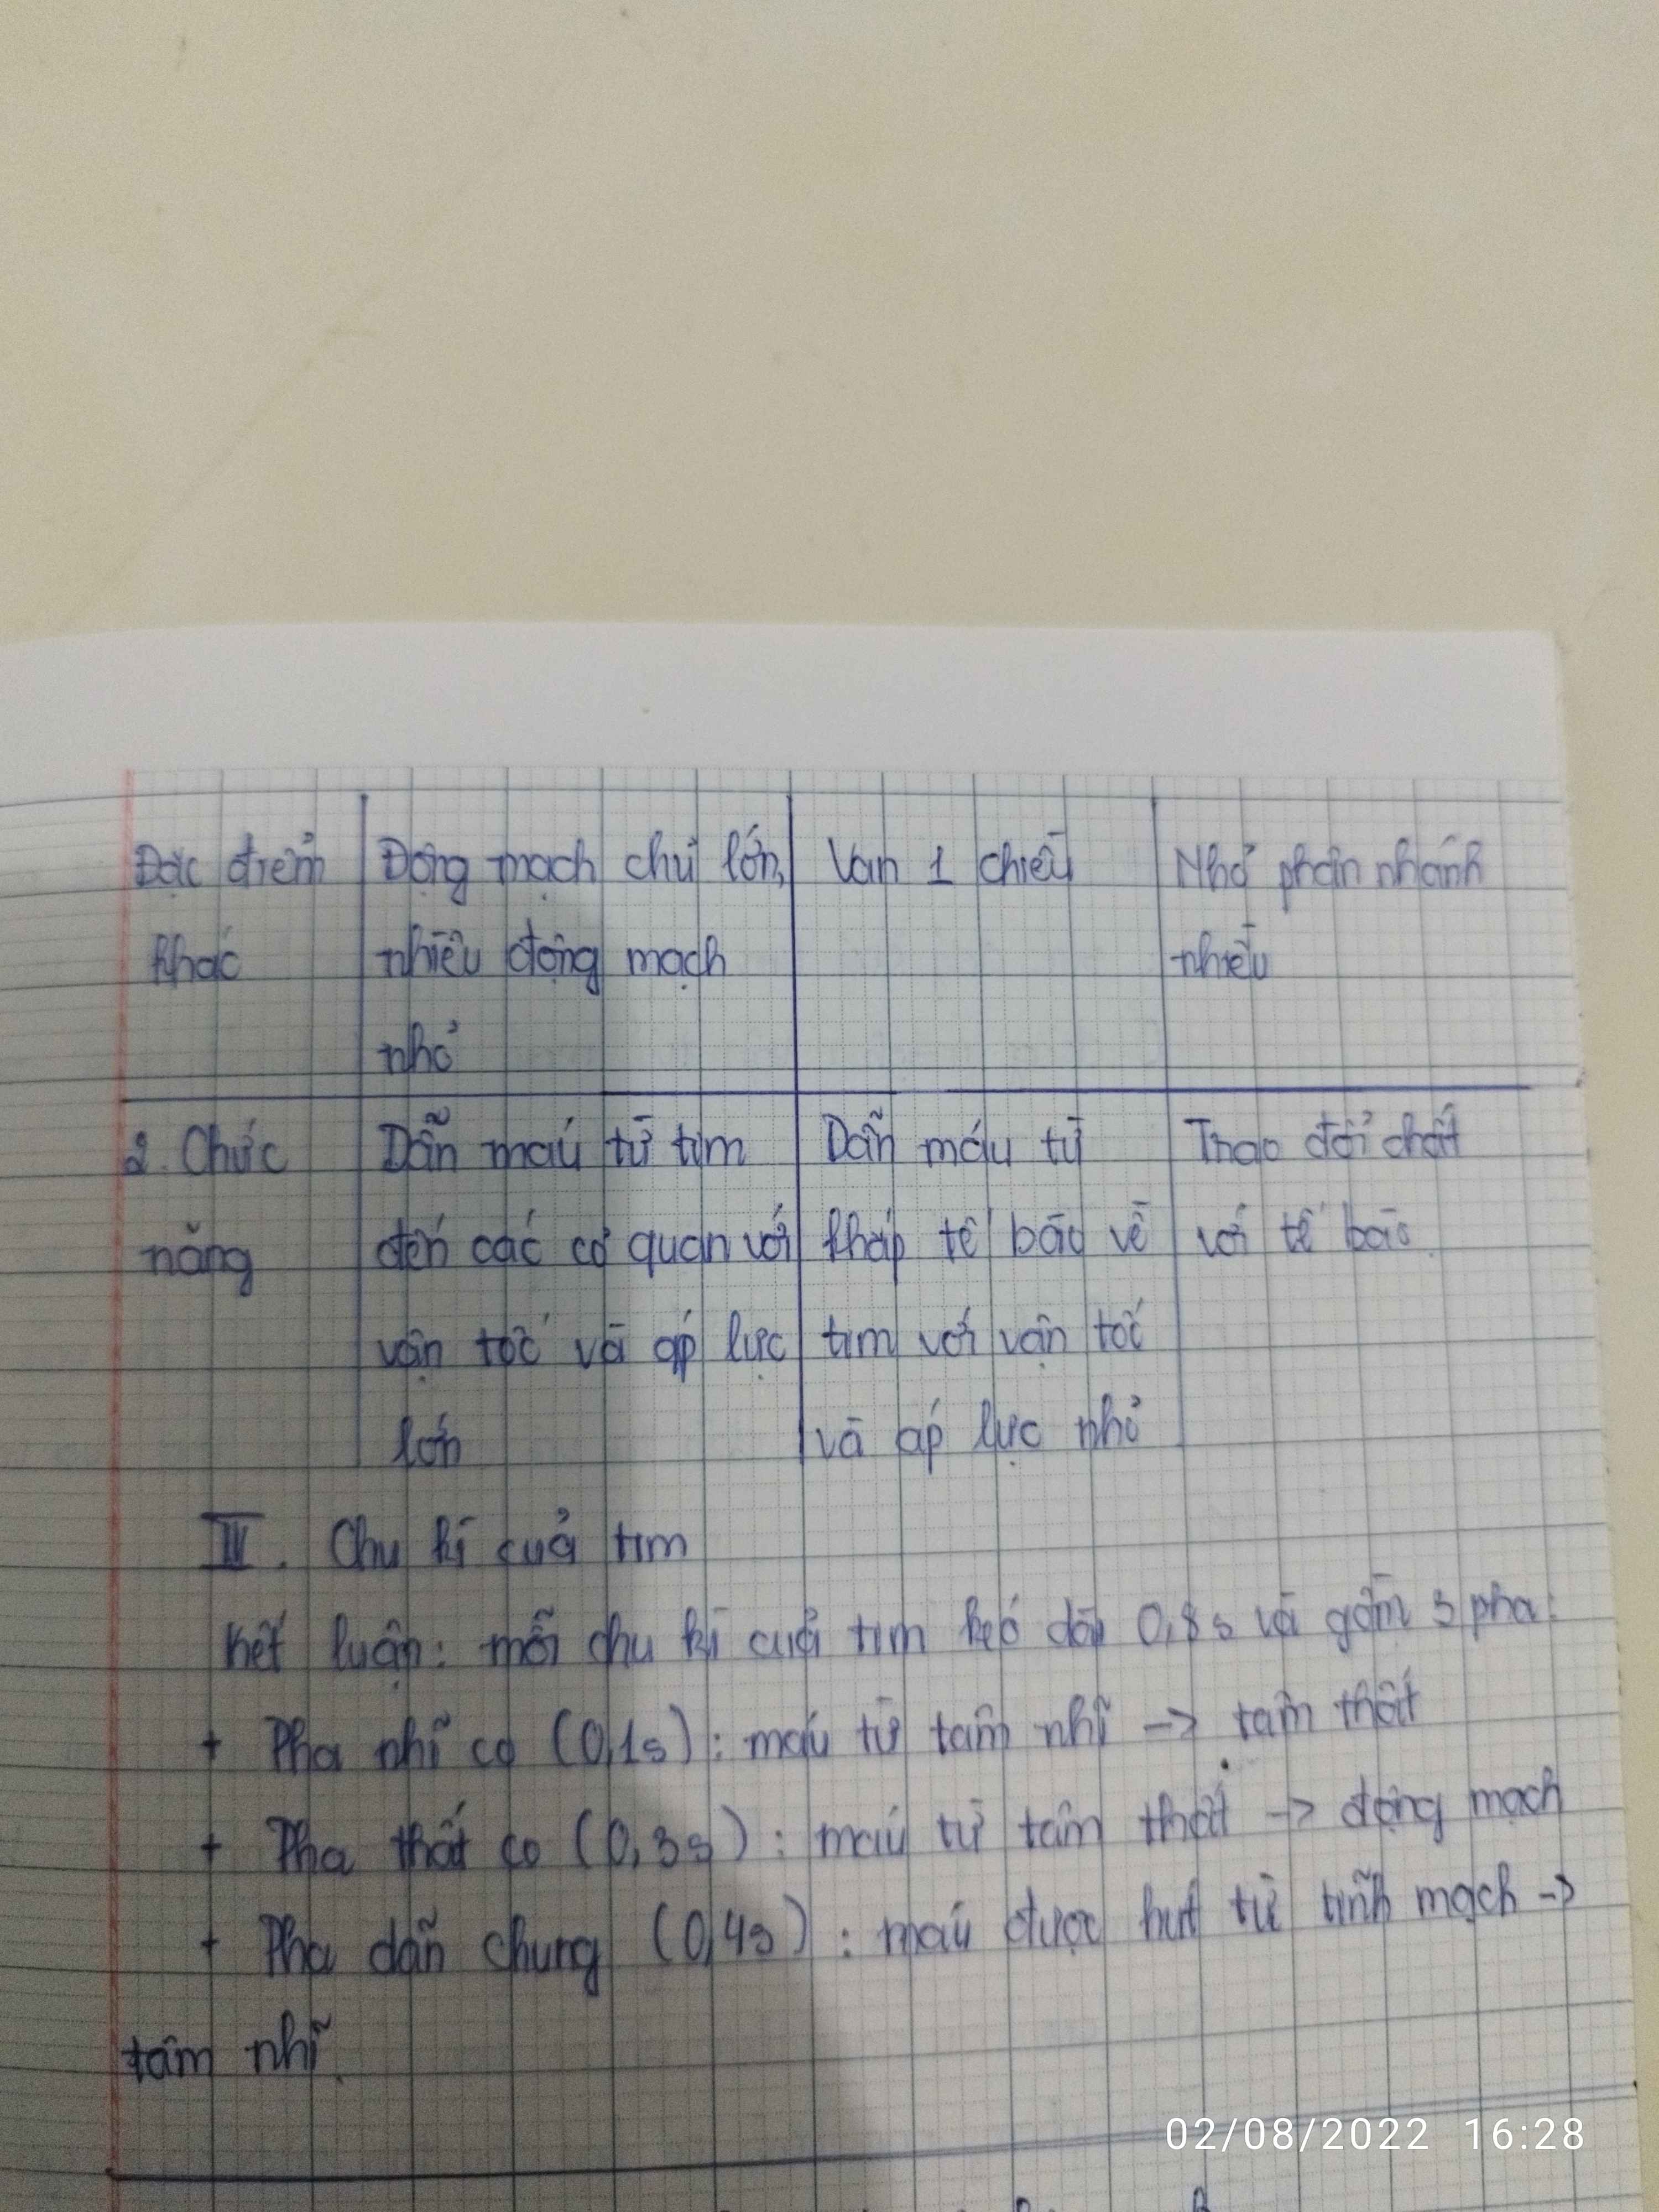 Đặc điểm | Động mạch chủ lớn, | Van 1 chiều | Nhỏ phân nhánh
khác | nhiều động mạch | | nhiều
nhỏ
2. Chức | Dẫn máu từ tim | Dẫn máu từ | Trao đổi chất
năng | đến các cơ quan với | khắp tế bào về | với tế bào.
vận tốc và áp lực | tim với vận tốc
lớn | và áp lực nhỏ
III. Chu kì của tim
Kết luận: mỗi chu kì của tim kéo dài 0,8s và gồm 3 pha:
+ Pha nhĩ co (0,1s): máu từ tâm nhĩ -> tâm thất
+ Pha thất co (0,3s): máu từ tâm thất -> động mạch
+ Pha dãn chung (0,4s): máu được hút từ tĩnh mạch ->
tâm nhĩ.
02/08/2022 16:28